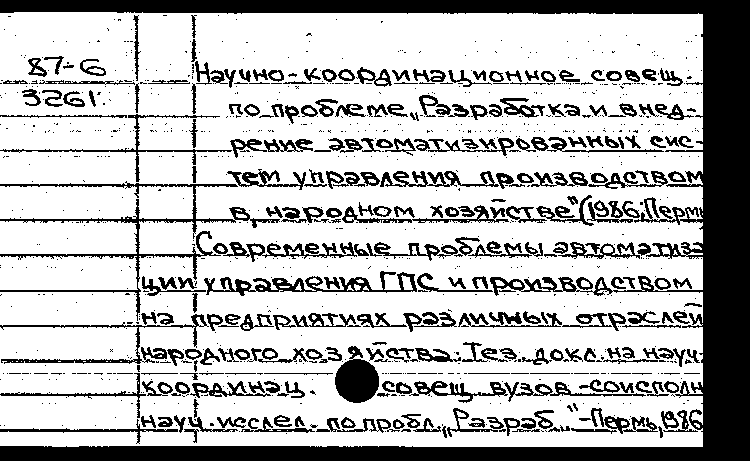 87-6
3261
Научно-координационное совещ.
по проблеме „Разработка и внед-
рение автоматизированных сис-
тем управления производством
в народном хозяйстве" (1986; Пермь
Современные проблемы автоматиза
ции управления ГПС и производством
на предприятиях различных отраслей
народного хозяйства: Тез. докл. на науч.-
координац. совещ. вузов-соисполн
науч.-исслед. по пробл. „Разраб..." - Пермь, 1986